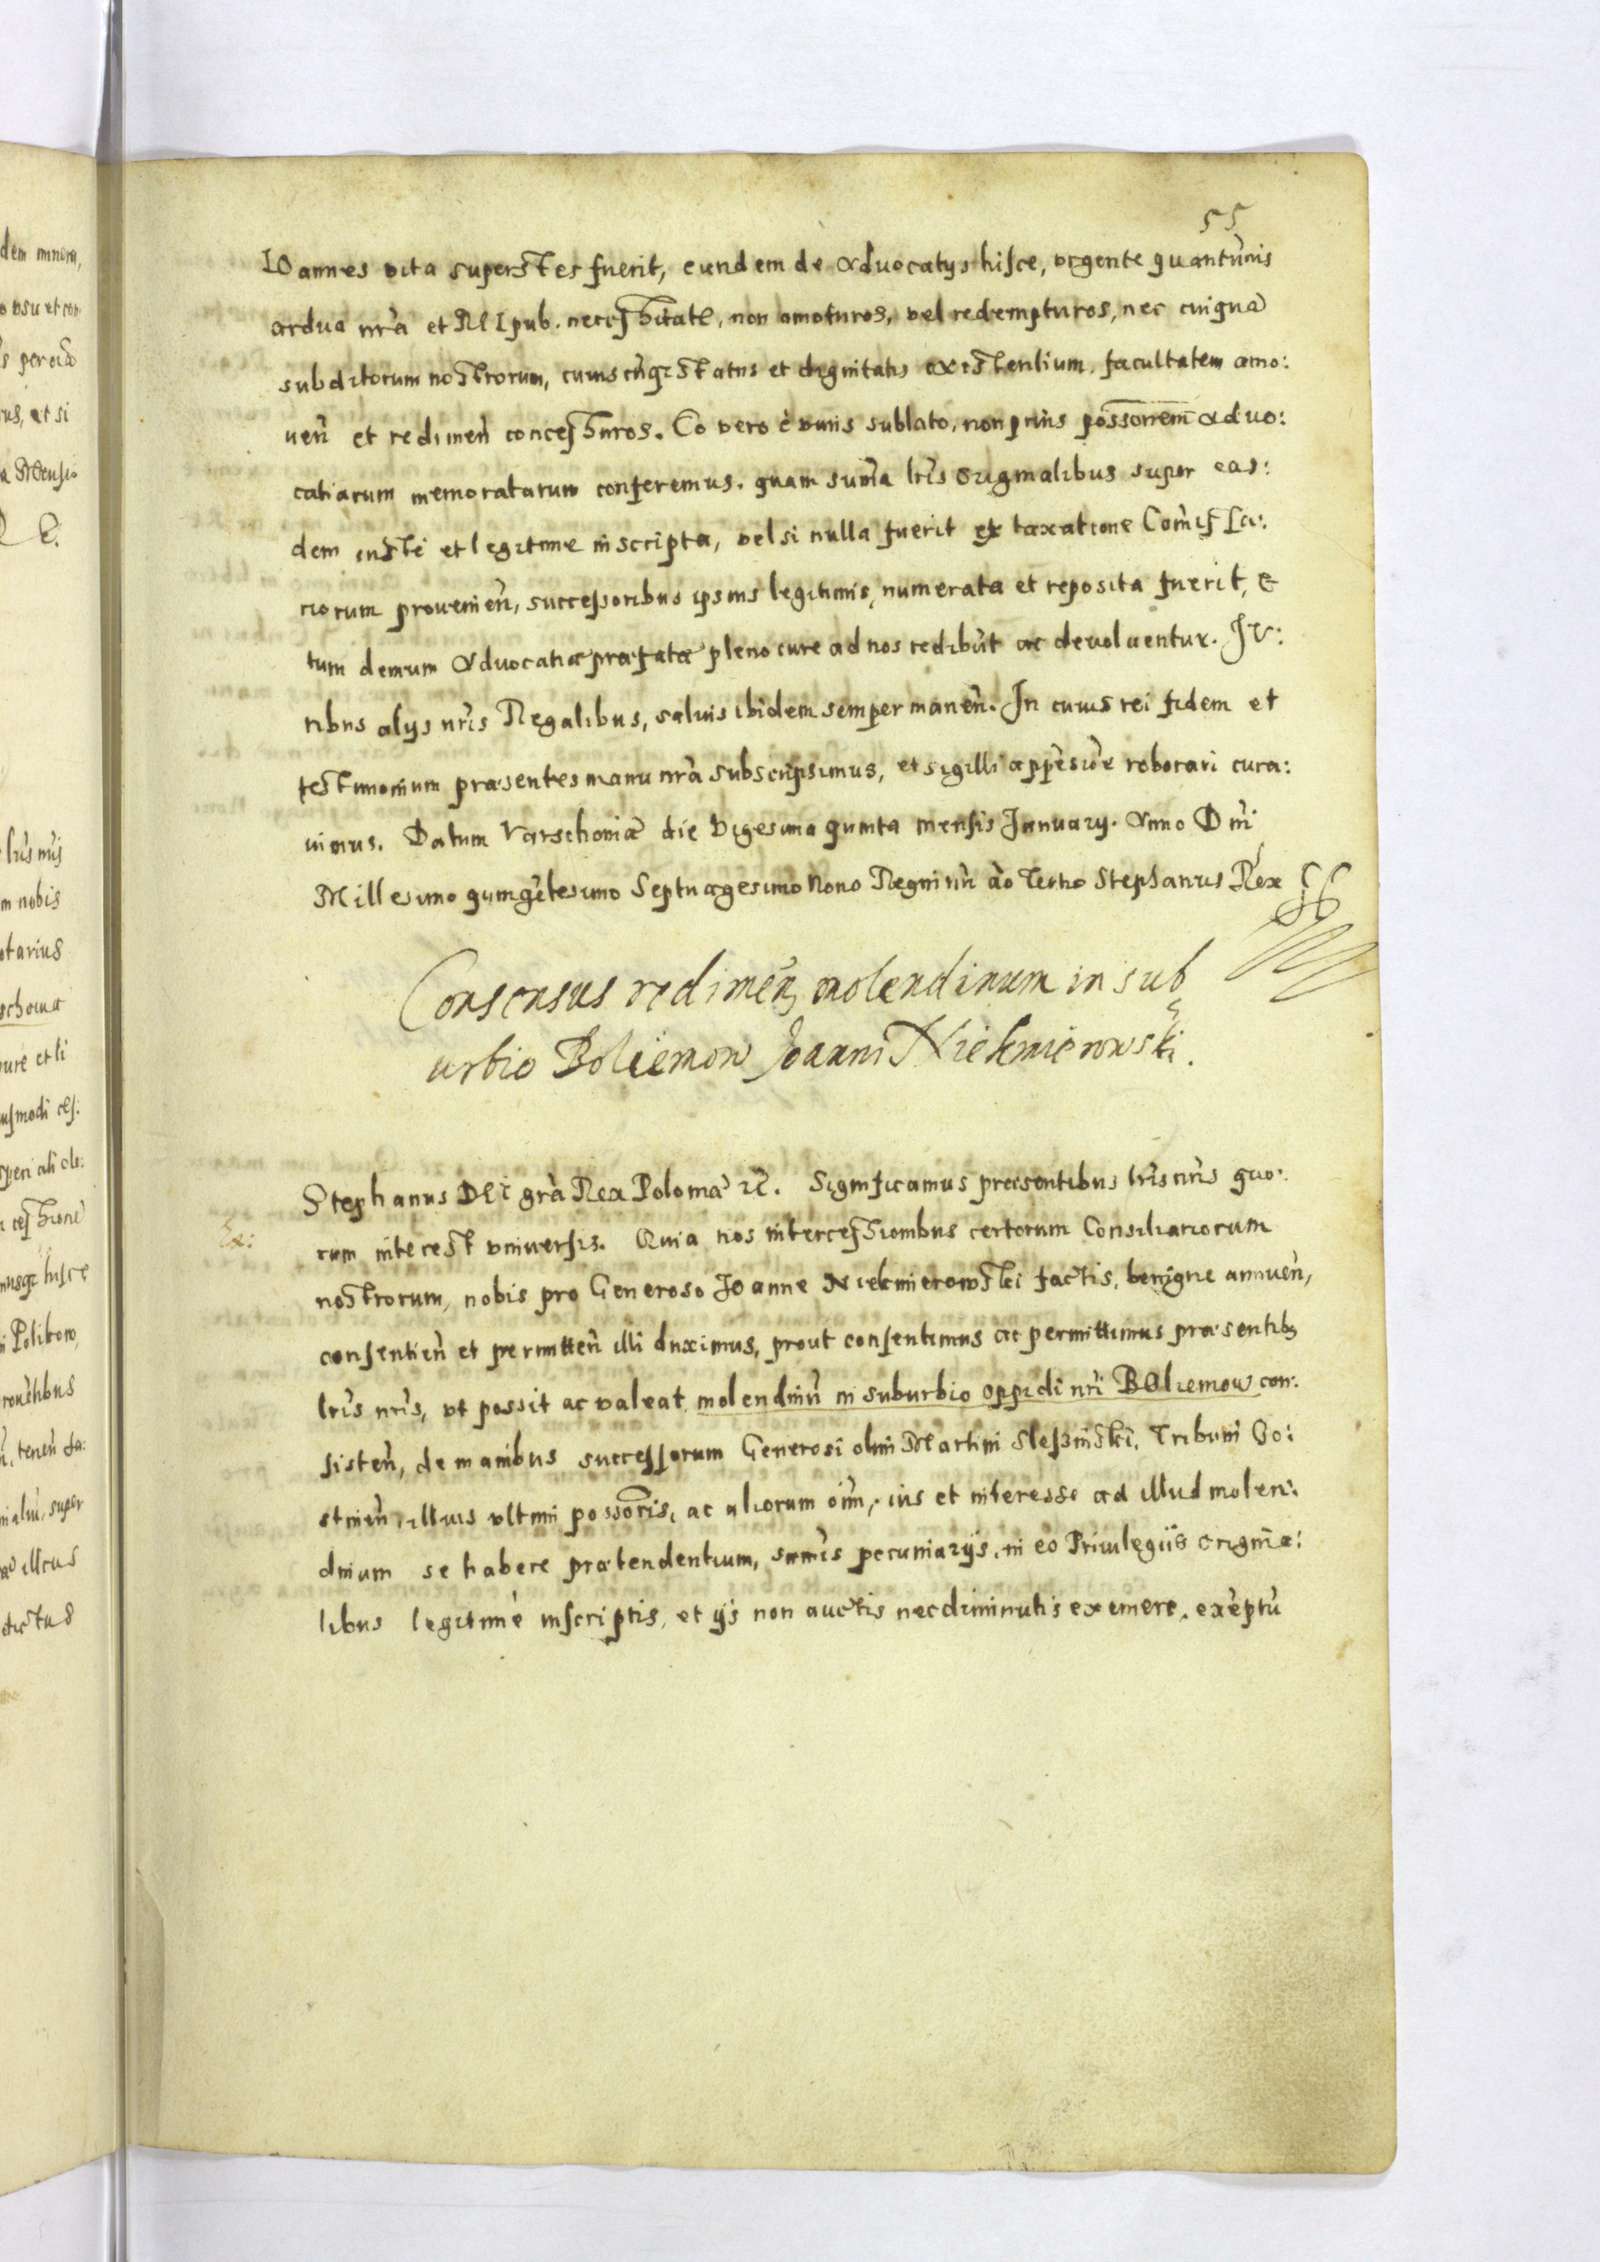 55
IOannes vita superstes fuerit, eundem de Advocatijs hisce, vrgente quantũuis
ardua nrã et REIpub. necessitate, non amoturos, vel redempturos, nec cuiquã
subditorum nostrorum, cuiuscũq; status et dignitatis existentium, facultatem amo:
uen̄ et redimen̄ concessuros. Eo vero è viuis sublato, non prius possorem̄ Aduo:
catiarum memoratarum conferemus. quam sum̃a lrĩs originalibus super eas:
dem iustè et legitime inscripta, vel si nulla fuerit ex taxatione Com̃issa:
riorum prouenien̄, successoribus ipsius legitimis, numerata et reposita fuerit, &
tum demum Advocatiæ præfatæ pleno iure ad nos redibũt ac devoluentur. Iu:
ribus alijs nrĩs Regalibus, saluis ibidem semper manen̄. In cuius rei fidem et
testimonium præsentes manu nrã subscripsimus, et sigilli appẽsiõe roborari cura:
uimus. Datum Varschouiæ die Vigesima quinta mensis January. Anno Dñi
Millesimo quingẽtesimo Septuagesimo Nono Regni nrĩ aõ Tertio Stephanus Rex
Consensus redimen̄ molendinum in sub
urbio Boliemow Joanni Niekmierowski.
Stephanus DEI grã Rex Poloniæ &c. Significamus præsentibus lrĩs nrĩs quo:
Ex:
rum interest vniuersis. Quia nos intercessionibus certorum Consiliariorum
nostrorum, nobis pro Generoso Joanne Niekmierowski factis, benigne annuen̄,
consentien̄ et permitten̄ illi duximus, prout consentimus ac permittimus præsentib9
lrĩs nrĩs, vt possit ac valeat molendinũ in suburbio oppidi nrĩ BOliemow con:
sisten̄, de manibus successorum Generosi olim Martini Slesżinski, Tribuni Go:
stinen̄, illius vltimi possoris, ac aliorum oĩm, ius et interesse ad illud molen:
dinum se habere prætendentium, sum̃is pecuniarijs, in eo Priuilegiis origina:
libus legitimè inscriptis, et ijs non auctis nec diminutis eximere, exẽptũ